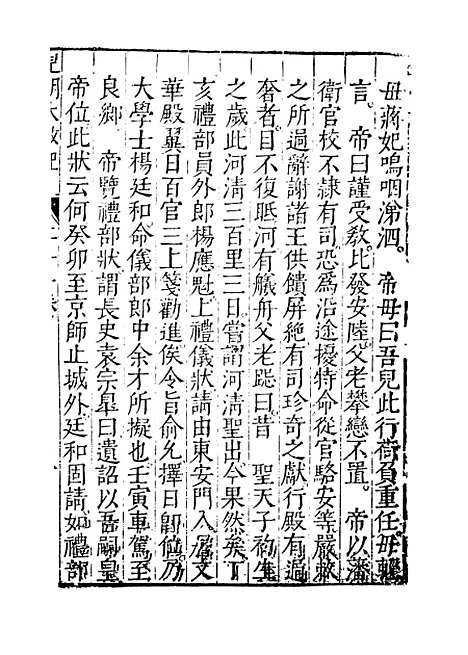 毋蔣妃嗚咽涕泗。帝毋曰吾兒此行荷負重任毋輕
言。帝曰謹受教比發安陸父老攀戀不置。帝以藩
衛官校不隸有司恐爲沿途擾特命從官駱安等嚴救
之所過辭謝諸王供饋屏絶有司珍奇之獻行殿有過
奢者目不復眡河有艤舟父老跽曰昔聖天子初生
之歲此河清三百里三日嘗謂河清聖出今果然矣丁
亥禮部員外郎楊應魁上禮儀狀請由東安門入居文
華殿翼日百官三上箋勸進俟令旨俞允擇日卽位乃
大學士楊廷和命儀部郎中余才所擬也壬寅車駕至
良鄉帝覽禮部狀謂長史袁宗臯曰遺詔以吾嗣皇
帝位此狀云何癸卯至京師止城外廷和固請如禮部
皇明大政記